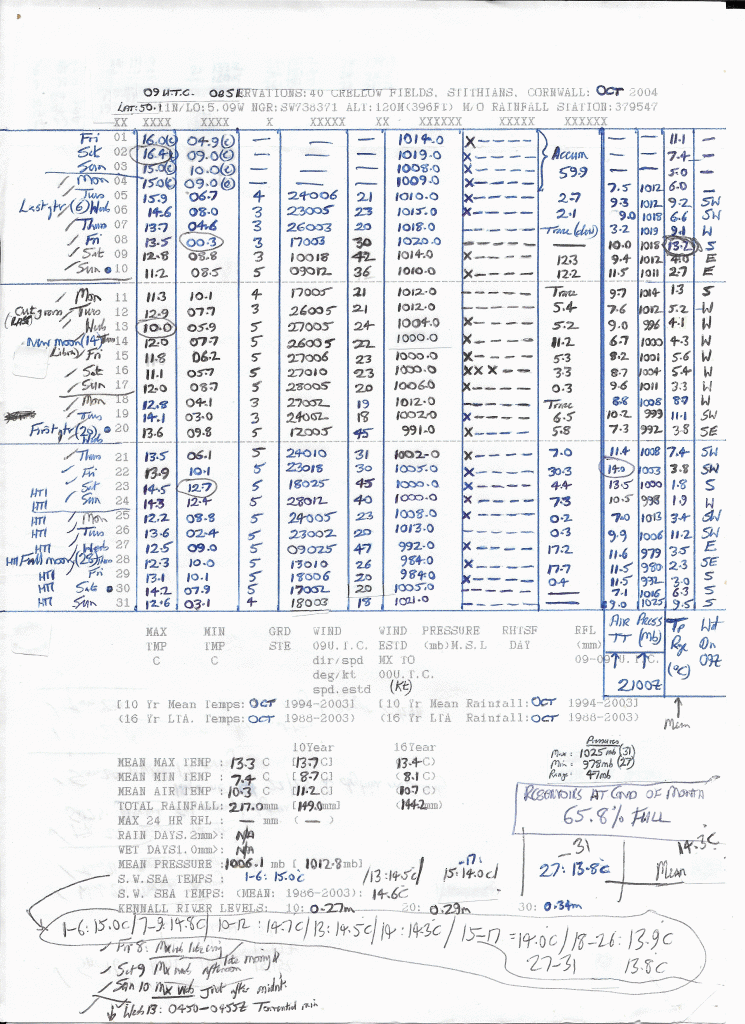 09 U.T.C. OBSERVATIONS: 40 CRELLOW FIELDS, STITHIANS, CORNWALL: OCT 2004
LAT:50.11N/LO:5.09W NGR:SW738371 ALT:120M(396FT) M/O RAINFALL STATION:379547
XX XXXX XXXX X XXXXX XX XXXXXX XXXXX XXXXXX
Fri 01 16.0(c) 04.9(c) — — — 1014.0 X----- — — 11.1 —
Sat 02 16.4 09.0(c) — — — 1019.0 X----- Accum — — 7.4 —
Sun 03 15.0(c) 10.0(c) — — — 1008.0 X----- 59.9 — — 5.0 —
Mon 04 15.0(c) 09.0(c) — — — 1009.0 X----- 7.5 1012 6.0 —
Tues 05 15.9 06.7 4 24006 21 1010.0 X----- 2.7 9.3 1012 9.2 SW
Last qtr (6) Web 06 14.6 08.0 3 23005 23 1015.0 X----- 2.1 9.0 1018 6.6 SW
Thurs 07 13.7 04.6 3 26003 20 1018.0 Trace (dew) 3.2 1019 9.1 W
Fri 08 13.5 00.3 3 17003 30 1020.0 ------ — 10.0 1018 13.2 S
Sat 09 12.8 08.8 3 10018 42 1014.0 X----- 12.3 9.4 1012 4.0 E
Sun 10 11.2 08.5 5 09012 36 1010.0 X----- 12.2 11.5 1011 2.7 E
Mon 11 11.3 10.1 4 17005 21 1012.0 ------ Trace 9.7 1014 1.3 S
Cut grass (last) Tues 12 12.9 07.7 3 26005 21 1012.0 X----- 5.4 7.6 1012 5.2 W
Web 13 10.0 05.9 5 27005 24 1004.0 X----- 5.2 9.0 996 4.1 W
New moon (14) Thurs 14 12.0 07.7 5 26005 22 1000.0 X----- 11.2 6.7 1000 4.3 W
Libra Fri 15 11.8 06.2 5 27006 23 1000.0 X----- 5.3 8.2 1001 5.6 W
Sat 16 11.1 05.7 5 27010 23 1000.0 XXX--- 3.3 8.7 1004 5.4 W
Sun 17 12.0 08.7 5 28005 20 1006.0 X----- 0.3 9.6 1011 3.3 W
Mon 18 12.8 04.1 3 27002 19 1012.0 ------ Trace 8.8 1008 8.7 W
Tues 19 14.1 03.0 3 24002 18 1002.0 X----- 6.5 10.2 999 11.1 SW
First qtr (20) Web 20 13.6 09.8 5 12005 45 991.0 X----- 5.8 7.3 992 3.8 SE
Thurs 21 13.5 06.1 5 24010 31 1002.0 X----- 7.0 11.4 1008 7.4 SW
Fri 22 13.9 10.1 5 23018 30 1005.0 X----- 30.3 14.0 1003 3.8 SW
HTI Sat 23 14.5 12.7 5 18025 45 1000.0 X----- 4.4 13.5 1000 1.8 S
HTI Sun 24 14.3 12.4 5 28012 40 1000.0 X----- 7.3 10.5 998 1.9 W
HTI Mon 25 12.2 08.8 5 24005 23 1008.0 X----- 0.2 7.0 1013 3.4 SW
HTI Tues 26 13.6 02.4 5 23002 20 1013.0 X----- 0.3 9.9 1006 11.2 SW
HTI Web 27 12.5 09.0 5 09025 47 992.0 X----- 17.2 11.6 979 3.5 E
HTI Full moon (28) Thurs 28 12.3 10.0 5 13010 26 984.0 X----- 17.7 11.5 980 2.3 SE
HTI Fri 29 13.1 10.1 5 18006 20 984.0 X----- 0.4 11.5 992 3.0 S
HTI Sat 30 14.2 07.9 5 17002 20 1005.0 ------ — 7.1 1016 6.3 S
HTI Sun 31 12.6 03.1 4 18003 18 1021.0 ------ — 9.0 1025 9.5 S
MAX MIN GRD WIND WIND PRESSURE RHTSF RFL AIR Press Tp Wd
TMP TMP STE 09U.T.C. ESTD (mb)M.S.L DAY (mm) TT (Mb) Rge Dn
C C dir/spd MX TO 09-09U.T.C. (°C) 09Z
deg/kt 00U.T.C.
spd.estd (Kt) 2100Z
[10 Yr Mean Temps: OCT 1994-2003] [10 Yr Mean Rainfall: OCT 1994-2003]
(16 Yr LTA. Temps: OCT 1988-2003) (16 Yr LTA Rainfall: OCT 1988-2003) Mean
10Year 16Year
Pressures
Max: 1025mb (31)
Min: 978mb (27)
Range: 47mb
MEAN MAX TEMP : 13.3 C [13.7] (13.4 C)
MEAN MIN TEMP : 7.4 C [8.7C] (8.1 C)
MEAN AIR TEMP : 10.3 C [11.2C] (10.7 C)
TOTAL RAINFALL: 217.0mm [149.0mm] (144.2mm)
RESERVOIRS AT END OF MONTH
65.8% FULL
MAX 24 HR RFL : — mm ( — )
RAIN DAYS.2mm): N/A
WET DAYS1.0mm): N/A
MEAN PRESSURE: 1006.1 mb [1012.8mb]
S.W.SEA TEMPS : 1-6: 15.0c /13:14.5c/ 15-17: 14.0c/ 27-31: 13.8c 14.3c Mean
S.W. SEA TEMPS: (MEAN: 1986-2003): 14.6c
KENNALL RIVER LEVELS: 10: 0.27m 20: 0.29m 30: 0.34m
1-6: 15.0c/7-9: 14.8c/10-12: 14.7c/13: 14.5c/14: 14.3c/15-17 = 14.0c/18-26: 13.9c
27-31 13.8c
Fri 8:
Sat 9 Mx afternoon
Sun 10 Mx just after midnt.
Web 13: 0450-0455Z Torrential rain